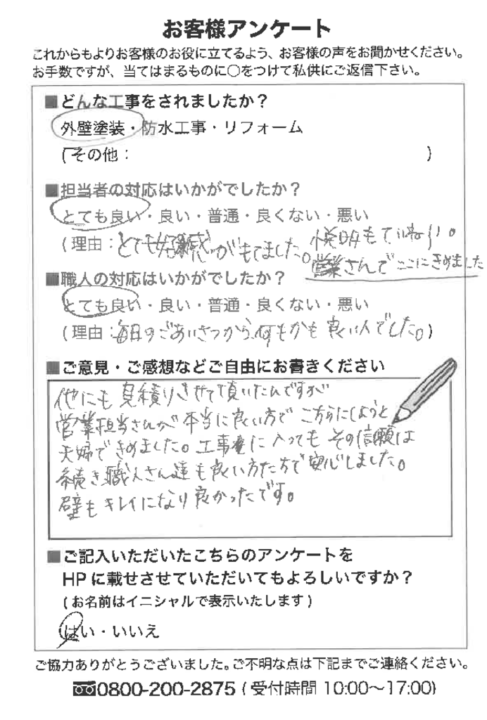 お客様アンケート
これからもよりお客様のお役に立てるよう、お客様の声をお聞かせください。
お手数ですが、当てはまるものに○をつけて私供にご返信下さい。
■どんな工事をされましたか？
外壁塗装・防水工事・リフォーム
(その他： )
■担当者の対応はいかがでしたか？
とても良い・良い・普通・良くない・悪い
(理由：とても好感がもてました。説明もていねい。
営業さんでここにきめました
■職人の対応はいかがでしたか？
とても良い・良い・普通・良くない・悪い
(理由：毎日のごあいさつから、何もかも良い人でした。)
■ご意見・ご感想などご自由にお書きください
他にも見積りさせて頂いたんですが
営業担当さんが本当に良い方でこちらにしようと
夫婦できめました。工事に入ってもその信頼は
続き職人さん達も良い方たちで安心しました。
壁もキレイになり良かったです。
■ご記入いただいたこちらのアンケートを
HPに載せさせていただいてもよろしいですか？
(お名前はイニシャルで表示いたします)
はい・いいえ
ご協力ありがとうございました。ご不明な点は下記までご連絡ください。
0800-200-2875 (受付時間 10:00〜17:00)